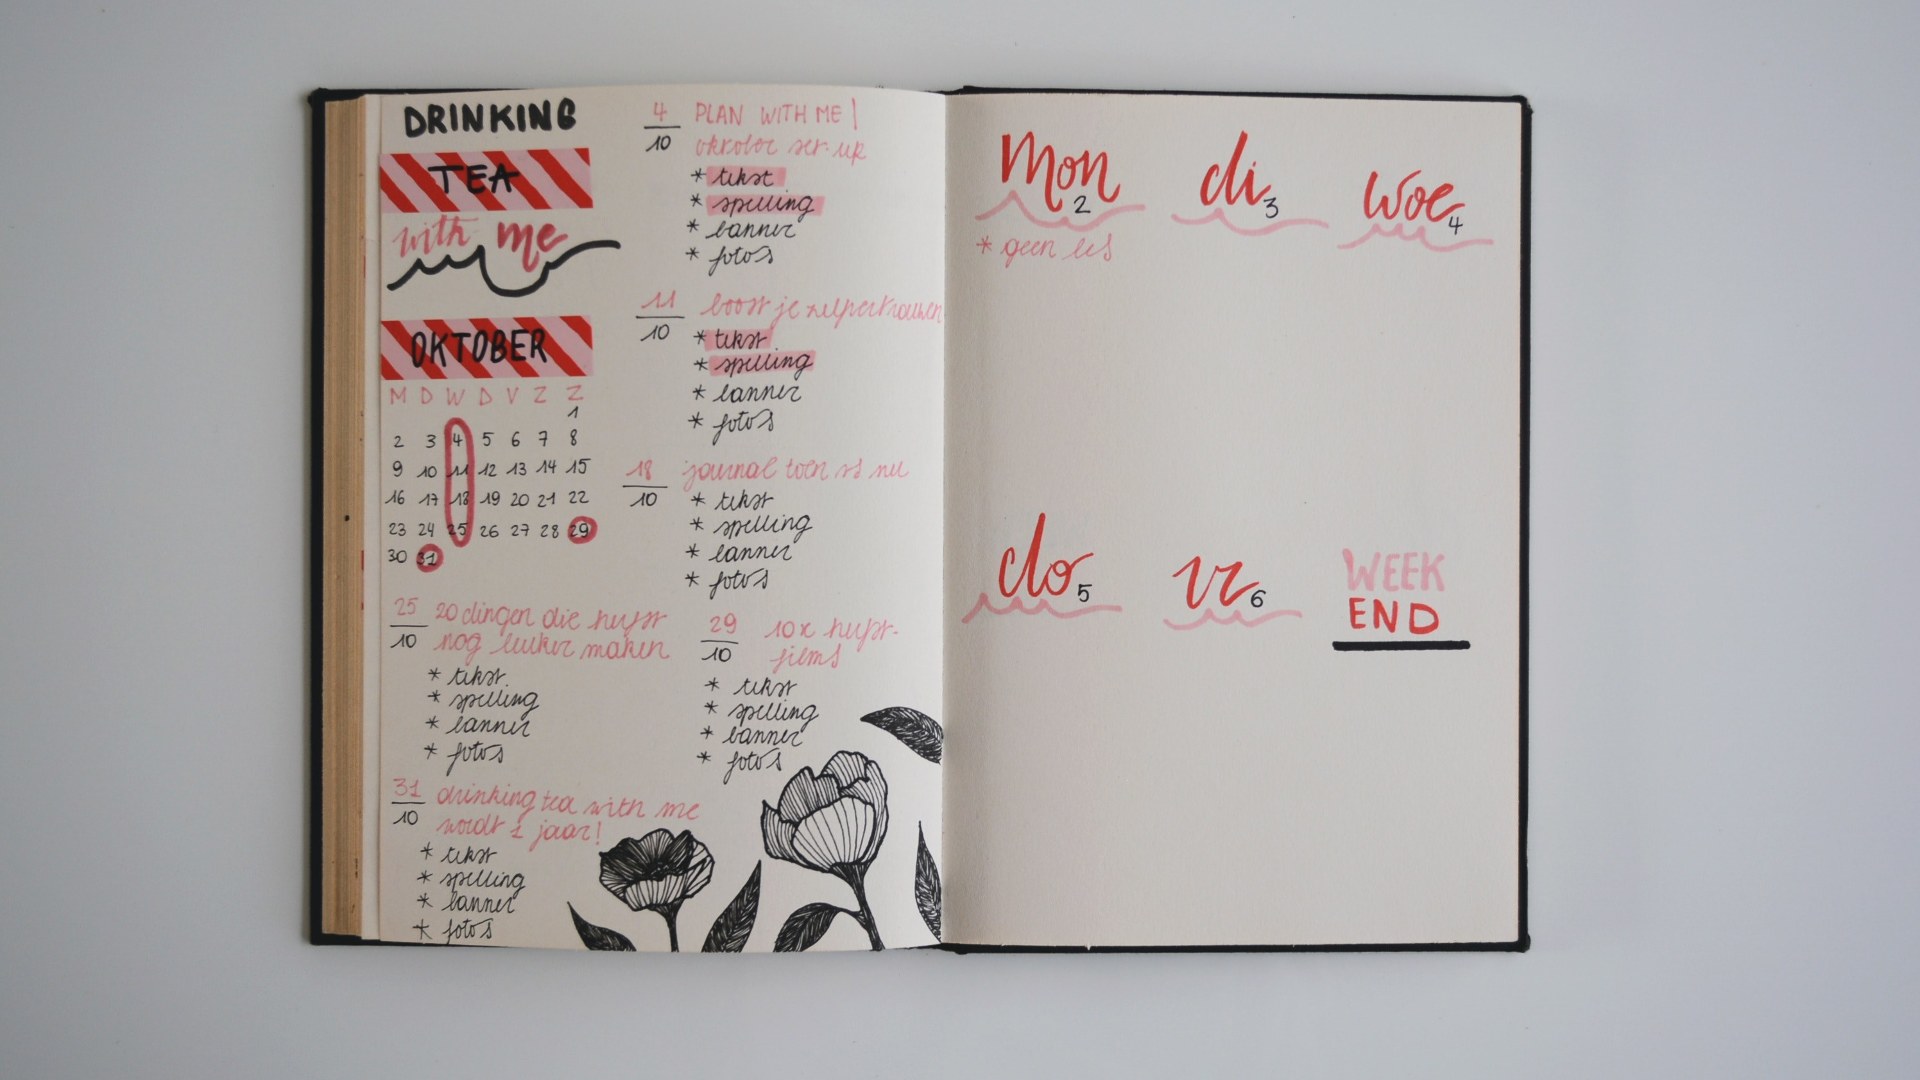 DRINKING
TEA
with me
OKTOBER
M D W D V Z Z
1
2 3 4 5 6 7 8
9 10 11 12 13 14 15
16 17 18 19 20 21 22
23 24 25 26 27 28 29
30 31
4
10
PLAN WITH ME |
oktober set-up
* tekst
* spelling
* banner
* foto's
11
10
boost je zelfvertrouwen
* tekst
* spelling
* banner
* foto's
18
10
journal toen vs nu
* tekst
* spelling
* banner
* foto's
25
10
20 dingen die herfst
nog leuker maken
* tekst
* spelling
* banner
* foto's
29
10
10x herfst-
films
* tekst
* spelling
* banner
* foto's
31
10
drinking tea with me
wordt 1 jaar!
* tekst
* spelling
* banner
* foto's
Mon
2
* geen les
di
3
woe
4
do
5
vr
6
WEEK
END